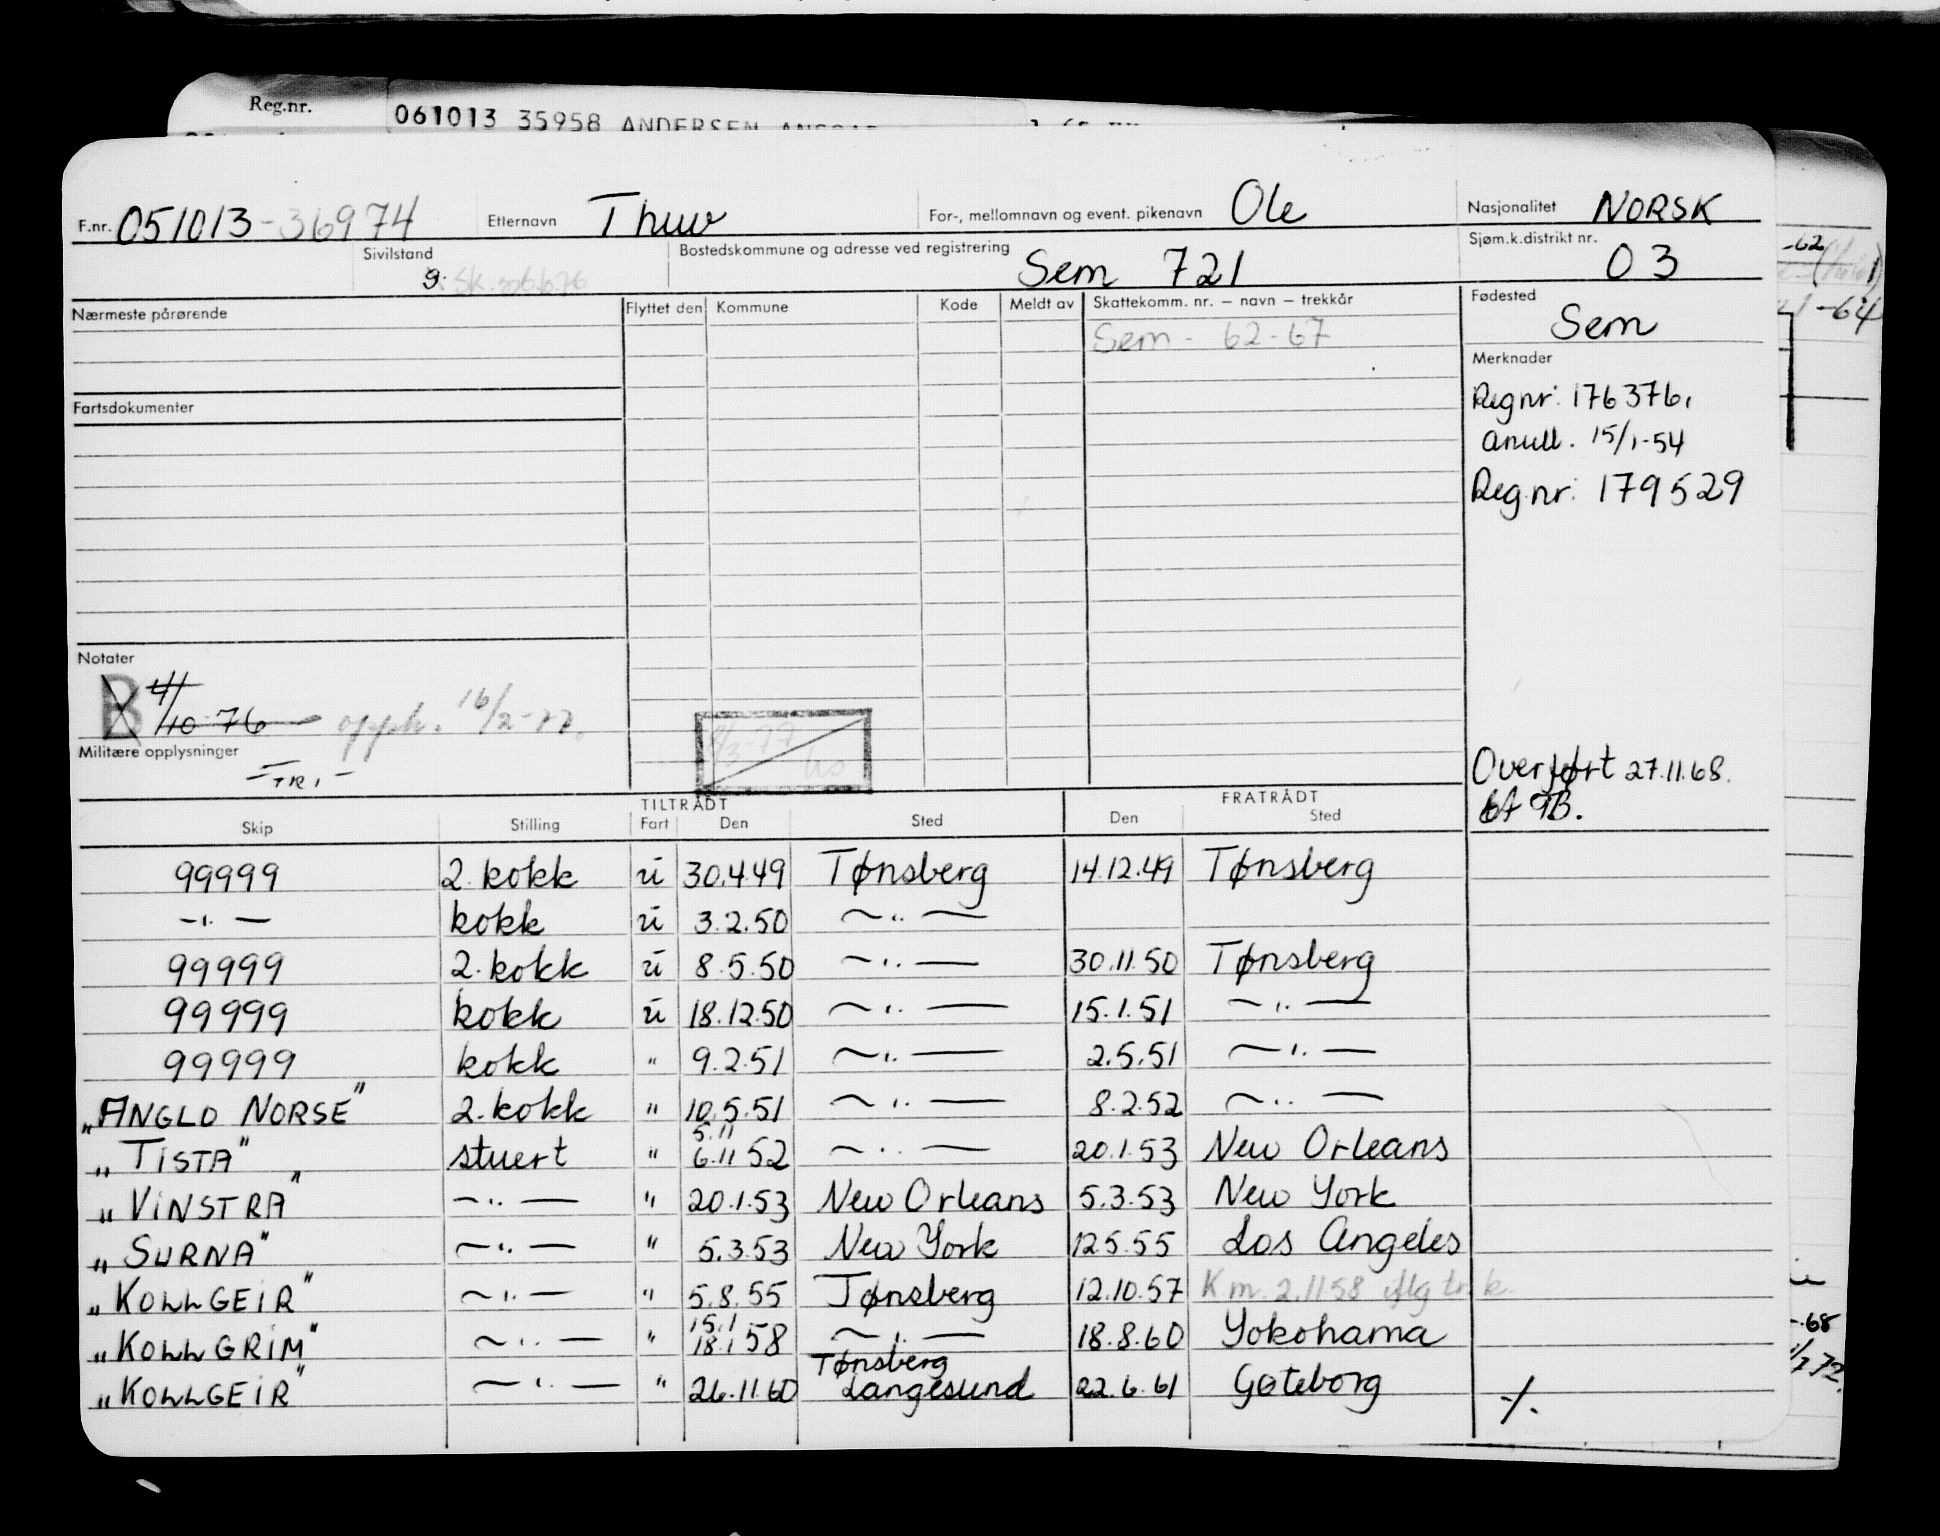 Reg.nr. 061013 35958 ANDERSEN
F.nr. 051013-36974 Etternavn Thuv For-, mellomnavn og event. pikenavn Ole Nasjonalitet NORSK
Sivilstand g. Bostedskommune og adresse ved registrering Sem 721 Sjøm.k.distrikt nr. 03
Nærmeste pårørende Flyttet den Kommune Kode Meldt av Skattekomm. nr. — navn — trekkår Fødested
Sem - 62-67 Sem
Merknader
Fartsdokumenter
Reg nr: 176376,
anull. 15/1-54
Reg.nr: 179529
Notater
B 4/10-76 opph. 16/2-77.
Militære opplysninger
-TR,-
Overført 27.11.68.
TILTRÅDT FRATRÅDT
Skip Stilling Fart Den Sted Den Sted
99999 2. kokk ū 30.4.49 Tønsberg 14.12.49 Tønsberg
-"- kokk ū 3.2.50 -"-
99999 2. kokk ū 8.5.50 -"- 30.11.50 Tønsberg
99999 kokk ū 18.12.50 -"- 15.1.51 -"-
99999 kokk " 9.2.51 -"- 2.5.51 -"-
„ANGLO NORSE" 2. kokk " 10.5.51 -"- 8.2.52 -"-
5.11
„TISTA" stuert " 6.11 52 -"- 20.1.53 New Orleans
„VINSTRA" -"- " 20.1.53 New Orleans 5.3.53 New York
„SURNA" -"- " 5.3.53 New York 12.5.55 Los Angeles
„KOLLGEIR" -"- " 5.8.55 Tønsberg 12.10.57 K.m. 2.11 58 iflg
15.1
„KOLLGRIM" -"- " 18.1 58 -"- 18.8.60 Yokohama
Tønsberg
„KOLLGEIR" -"- " 26.11.60 Langesund 22.6.61 Gøteborg ./.
-62
-64
-68